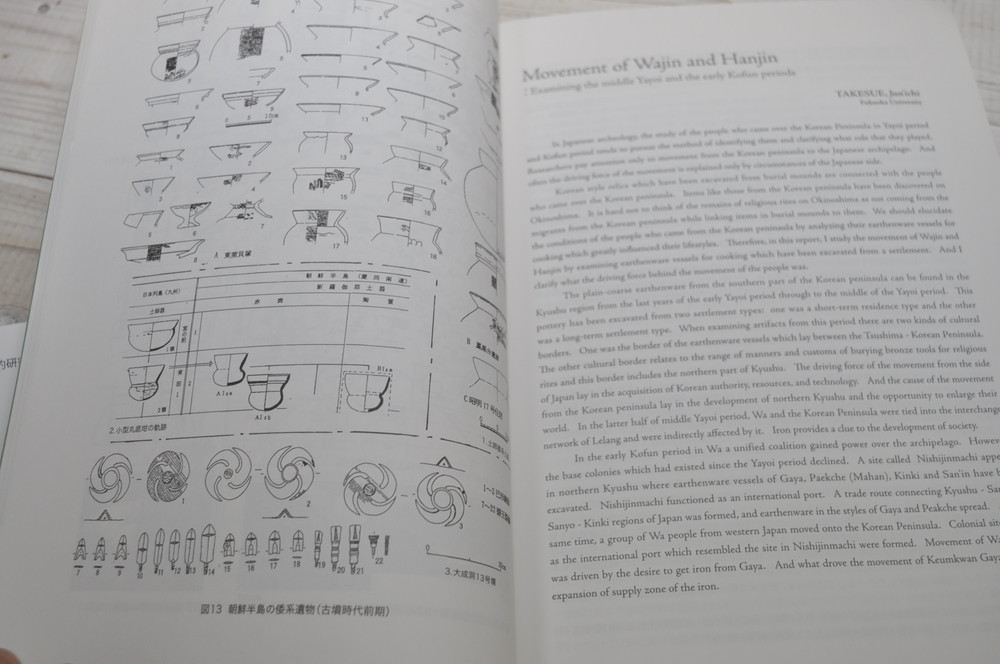 的研
1
2
3
4
5
6
7
8
9
10cm
11
12
13
14
15
16
17
18
A 東莱貝塚
日本列島(九州)
朝鮮半島(慶尚南道)
新羅伽耶土器
土師器
赤焼
陶質
A1am
A1ab
B1am
2.小型丸底坩の軌跡
C
1
2
3
7
8
9
10
11
12
13
14
15
16
17
18
19
20
21
22
0
3.大成洞13号墳
図13 朝鮮半島の倭系遺物(古墳時代前期)
Movement of Wajin and Hanjin
: Examining the middle Yayoi and the early Kofun periods
TAKESUE, Jun'ichi
Fukuoka University
In Japanese archeology, the study of the people who came over the Korean Peninsula in Yayoi period
and Kofun period tends to pursue the method of identifying them and clarifying what role that they played.
Researchers pay attention only to movement from the Korean peninsula to the Japanese archipelago. And
often the driving force of the movement is explained only by circumstances of the Japanese side.
Korean style relics which have been excavated from burial mounds are connected with the people
who came over the Korean peninsula. Items like those from the Korean peninsula have been discovered on
Okinoshima. It is hard not to think of the remains of religious rites on Okinoshima as not coming from the
migrants from the Korean peninsula while linking items in burial mounds to them. We should elucidate
the conditions of the people who came from the Korean peninsula by analyzing their earthenware vessels for
cooking which greatly influenced their lifestyles. Therefore, in this report, I study the movement of Wajin and
Hanjin by examining earthenware vessels for cooking which have been excavated from a settlement. And I
clarify what the driving force behind the movement of the people was.
The plain-coarse earthenware from the southern part of the Korean peninsula can be found in the
Kyushu region from the last years of the early Yayoi period through to the middle of the Yayoi period. This
pottery has been excavated from two settlement types: one was a short-term residence type and the other
was a long-term settlement type. When examining artifacts from this period there are two kinds of cultural
borders. One was the border of the earthenware vessels which lay between the Tsushima - Korean Peninsula.
The other cultural border relates to the range of manners and customs of burying bronze tools for religious
rites and this border includes the northern part of Kyushu. The driving force of the movement from the side
of Japan lay in the acquisition of Korean authority, resources, and technology. And the cause of the movement
from the Korean peninsula lay in the development of northern Kyushu and the opportunity to enlarge their
world. In the latter half of middle Yayoi period, Wa and the Korean Peninsula were tied into the interchange
network of Lelang and were indirectly affected by it. Iron provides a clue to the development of society.
In the early Kofun period in Wa a unified coalition gained power over the archipelago. Howev
the base colonies which had existed since the Yayoi period declined. A site called Nishijinmachi appe
in northern Kyushu where earthenware vessels of Gaya, Paekche (Mahan), Kinki and San'in have b
excavated. Nishijinmachi functioned as an international port. A trade route connecting Kyushu - San
Sanyo - Kinki regions of Japan was formed, and earthenware in the styles of Gaya and Peakche spread.
same time, a group of Wa people from western Japan moved onto the Korean Peninsula. Colonial sit
as the international port which resembled the site in Nishijinmachi were formed. Movement of Wa
was driven by the desire to get iron from Gaya. And what drove the movement of Keumkwan Gay
expansion of supply zone of the iron.